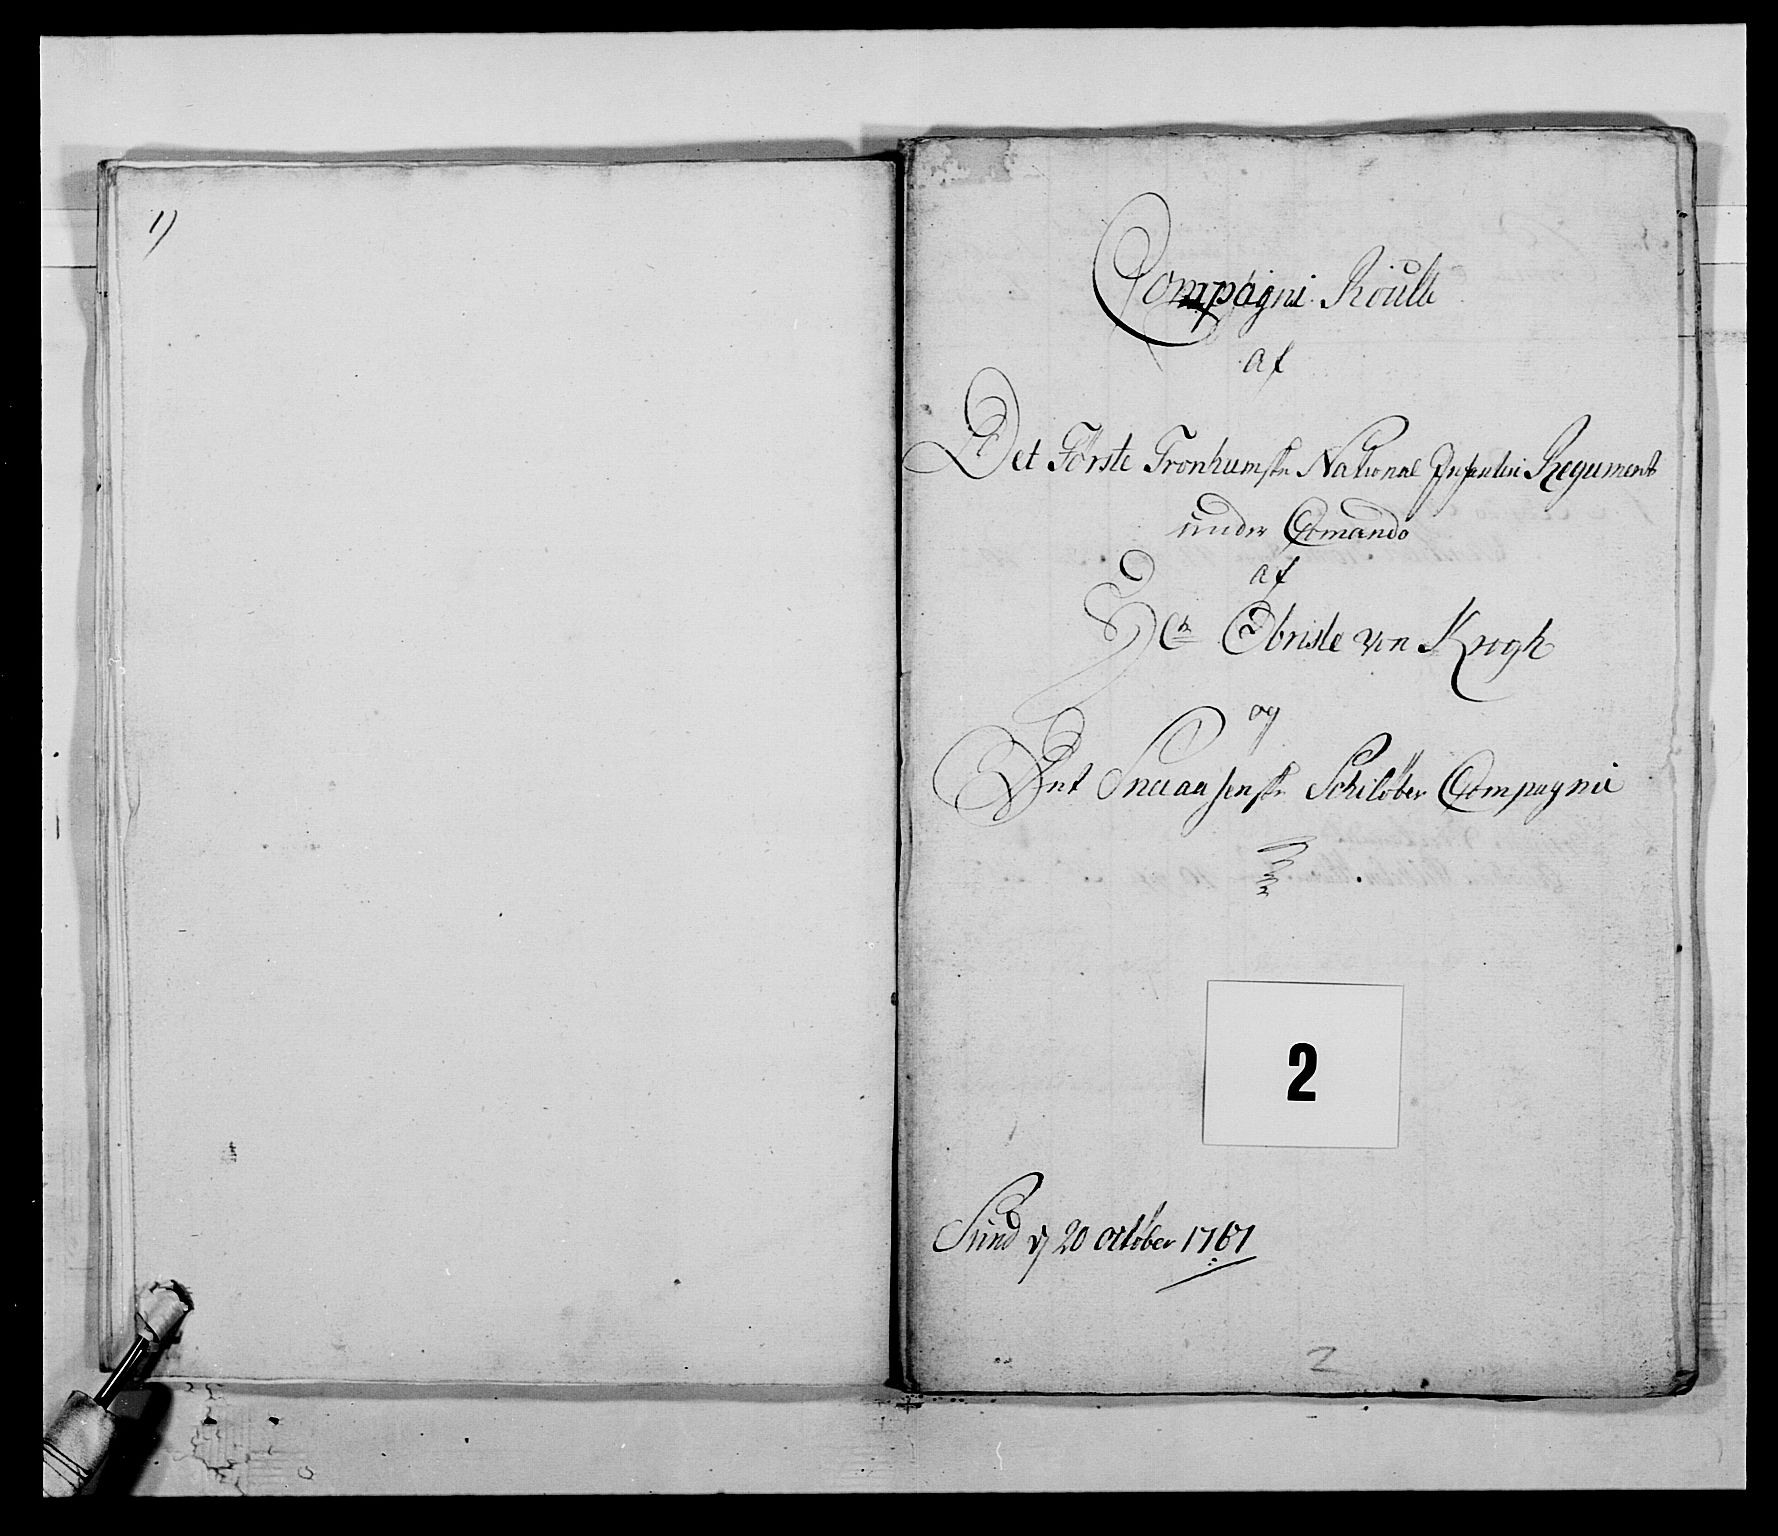 1)
Compagni Roulle
af
Det Förste Tronhiemske National Infanteri Regiment
under Comando
af
Hr Obriste von Krogh
og
Det Snaasenske Schilöber Compagnie
2
Sund d 20 October 1767
2